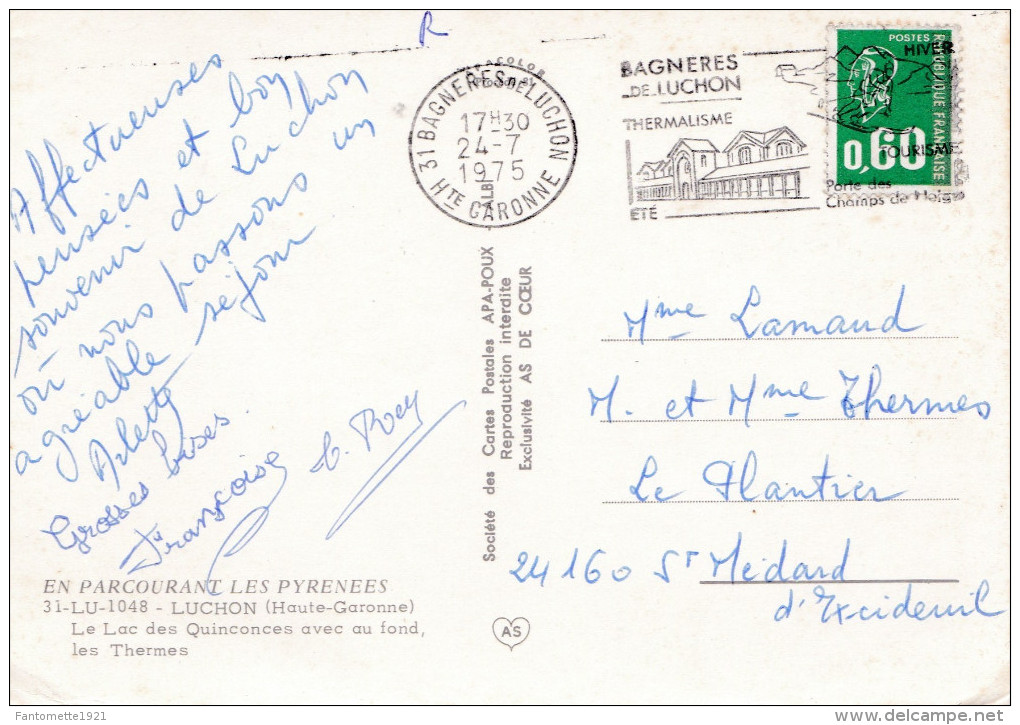 R
Affectueuses
pensées et bon
souvenir de Luchon
où nous passons un
agréable séjour
Arlette
Grosses bises
Françoise
EN PARCOURANT LES PYRENEES
31-LU-1048 - LUCHON (Haute-Garonne)
Le Lac des Quinconces avec au fond,
les Thermes
Société des Cartes Postales APA-POUX
Reproduction interdite
Exclusivité AS DE CŒUR
AS
31 BAGNERES DE LUCHON
17H30
24-7
1975
HTE GARONNE
BAGNERES
DE LUCHON
THERMALISME
ETÉ
HIVER
TOURISME
Porte des
Champs de Neige
POSTES
REPUBLIQUE FRANÇAISE
0,60
Mme Lamaud
M. et Mme Thermes
Le Plantier
24160 St Médard
d'Excideuil
Fantomette1921